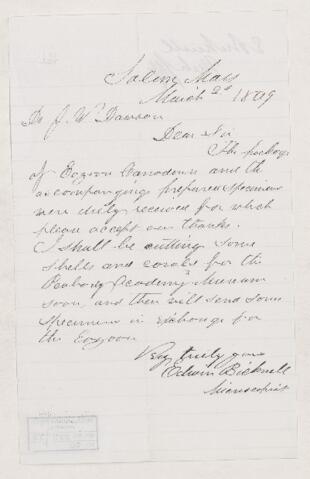 Salem, Mass
March 2d 1869
Dr J. Wm Dawson
Dear Sir
The package
of Eozoon Canadense and the
accompanying prepared specimens
were duly received for which
please accept our thanks.
I shall be cutting some
shells and corals for the
Peabody Academy Museum
soon, and then will send some
specimens in exchange for
the Eozoon
Very truly yours
Edwin Bicknell
Microscopist